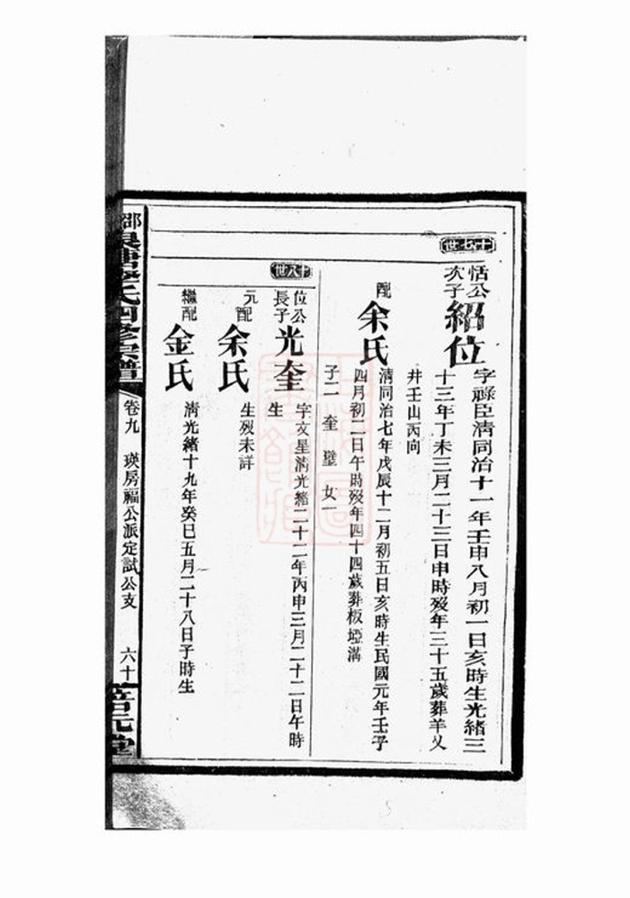 十七世
恬公次子
紹位
字祿臣清同治十一年壬申八月初一日亥時生光緒三
十三年丁未三月二十三日申時歿年三十五歲葬羊乂
井壬山丙向
配
余氏
清同治七年戊辰十二月初五日亥時生民國元年壬子
四月初二日午時歿年四十四歲葬板埡溝
子二 奎 璧 女一
十八世
位公長子
光奎
字文星清光緒二十二年丙申三月二十二日午時
生
元配
余氏
生歿未詳
繼配
金氏
清光緒十九年癸巳五月二十八日子時生
氏四修宗譜
卷九
瑛房福公派定試公支
六十